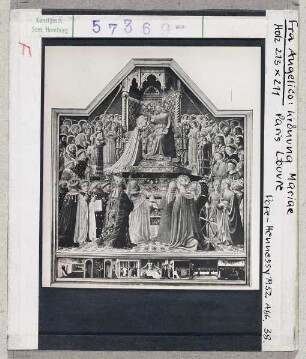 Kunstgesch.
Sem. Hamburg
57369
Fra Angelico: Krönung Mariae
Holz 213 x 211 Paris Louvre
Pope-Hennessy 1952 Abb. 38